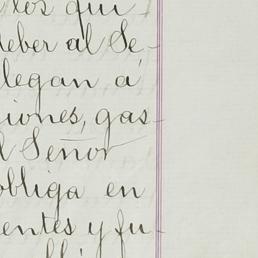 los qui
deber al Se-
legan á
iones, gas-
l Señor
obliga en
entes y fu-